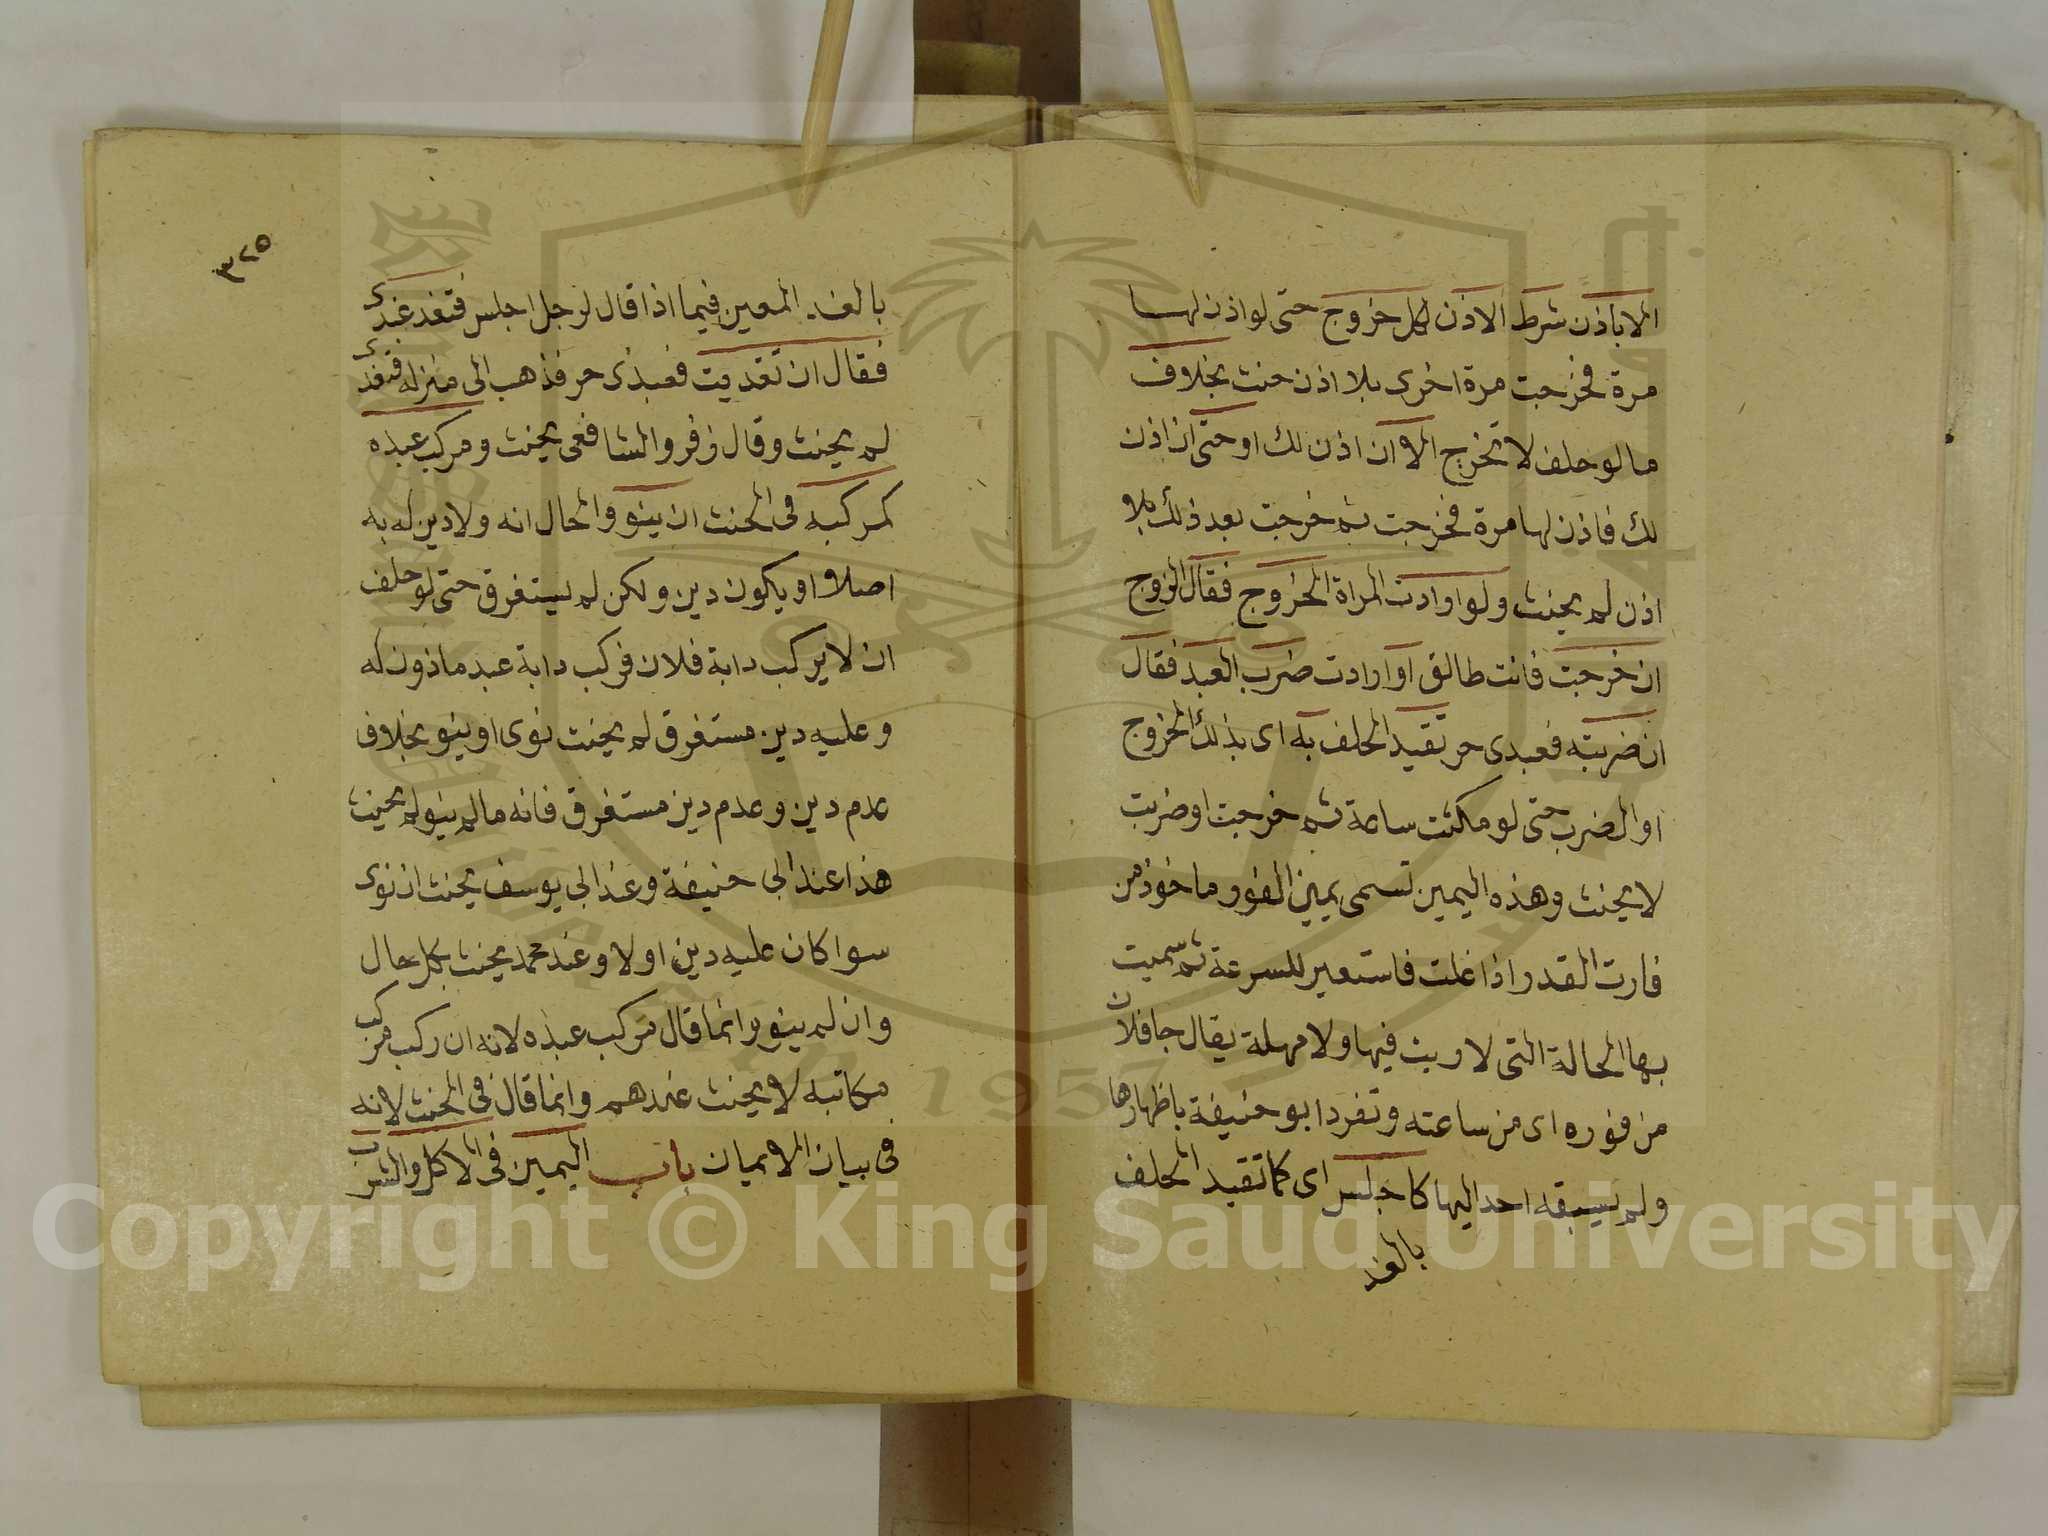 الا باذن شرط الاذن لكل خروج حتى لو اذن لها
مرة فخرجت مرة اخرى بلا اذن حنث بخلاف
ما لو حلف لا تخرج الا ان اذن لك او حتى ان اذن
لك فاذن لها مرة فخرجت ثم خرجت بعد ذلك بلا
اذن لم يحنث ولو ارادت المراة الخروج فقال الزوج
ان خرجت فانت طالق او ارادت ضرب العبد فقال
ان ضربته فعبدى حر تقيد الحلف به اى بذلك الخروج
او الضرب حتى لو مكثت ساعة ثم خرجت او ضربت
لا يحنث وهذه اليمين تسمى يمين الفور ماخوذ من
فارت القدر اذا غلت فاستعير للسرعة ثم سميت
بها الحالة التى لا ريث فيها ولا مهلة يقال جا فلان
من فوره اى من ساعته وتفرد ابو حنيفة باظهارها
ولم يسبقه احد اليها كاجلس اى كما تقيد الحلف
بالغد
٣٢٥
بالغد المعين فيما اذا قال لرجل اجلس فتغد عندى
فقال ان تغديت فعبدى حر فذهب الى منزله فتغدى
لم يحنث وقال زفر والشافعى يحنث ومركب عبده
كمركبه فى الحنث ان ينو والحال انه ولا دين له به
اصلا او يكون دين ولكن لم يستغرق حتى لو حلف
ان لا يركب دابة فلان فركب دابة عبد ماذون له
وعليه دين مستغرق لم يحنث نوى او ينو بخلاف
عدم دين وعدم دين مستغرق فانه ما لم ينو لم يحنث
هذا عند ابى حنيفة وعند ابى يوسف يحنث ان نوى
سوا كان عليه دين اولا وعند محمد يحنث بكل حال
وان لم ينو وانما قال مركب عبده لانه ان ركب مركب
مكاتبه لا يحنث عندهم وانما قال فى الحنث لانه
فى بيان الايمان باب اليمين فى الاكل والشرب
Copyright © King Saud University
1957